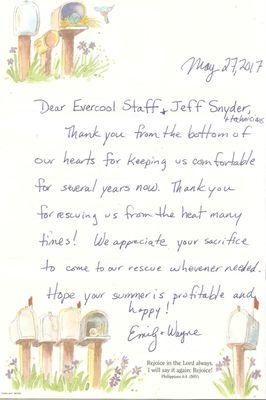 May 27, 2017
Dear Evercool Staff & Jeff Snyder,
+ technicians
Thank you from the bottom of
our hearts for keeping us comfortable
for several years now. Thank you
for rescuing us from the heat many
times! We appreciate your sacrifice
to come to our rescue whenever needed.
Hope your summer is profitable and
happy!
Emig + Wayne
Rejoice in the Lord always.
I will say it again: Rejoice!
Philippians 4:4 (NIV)